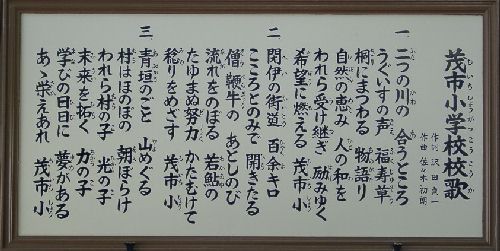 茂市小学校校歌
もいちしょうがっこうこうか
作曲 佐々木初朗
一 二つの川の 合うところ
うぐいすの声 福寿草
桐にまつわる 物語り
自然の恵み 人の和を
われら受け継ぎ 励みゆく
希望に燃える 茂市小
二 閉伊の街道 百余キロ
こころとのみで 開きたる
僧 鞭牛の あとしのび
流れをのぼる 若鮎の
たゆまぬ努力 かたむけて
稔りをめざす 茂市小
三 青垣のごと 山めぐる
村はほのぼの 朝ぼらけ
われら村の子 光の子
未来を拓く 力の子
学びの日日に 夢がある
あゝ栄えあれ 茂市小